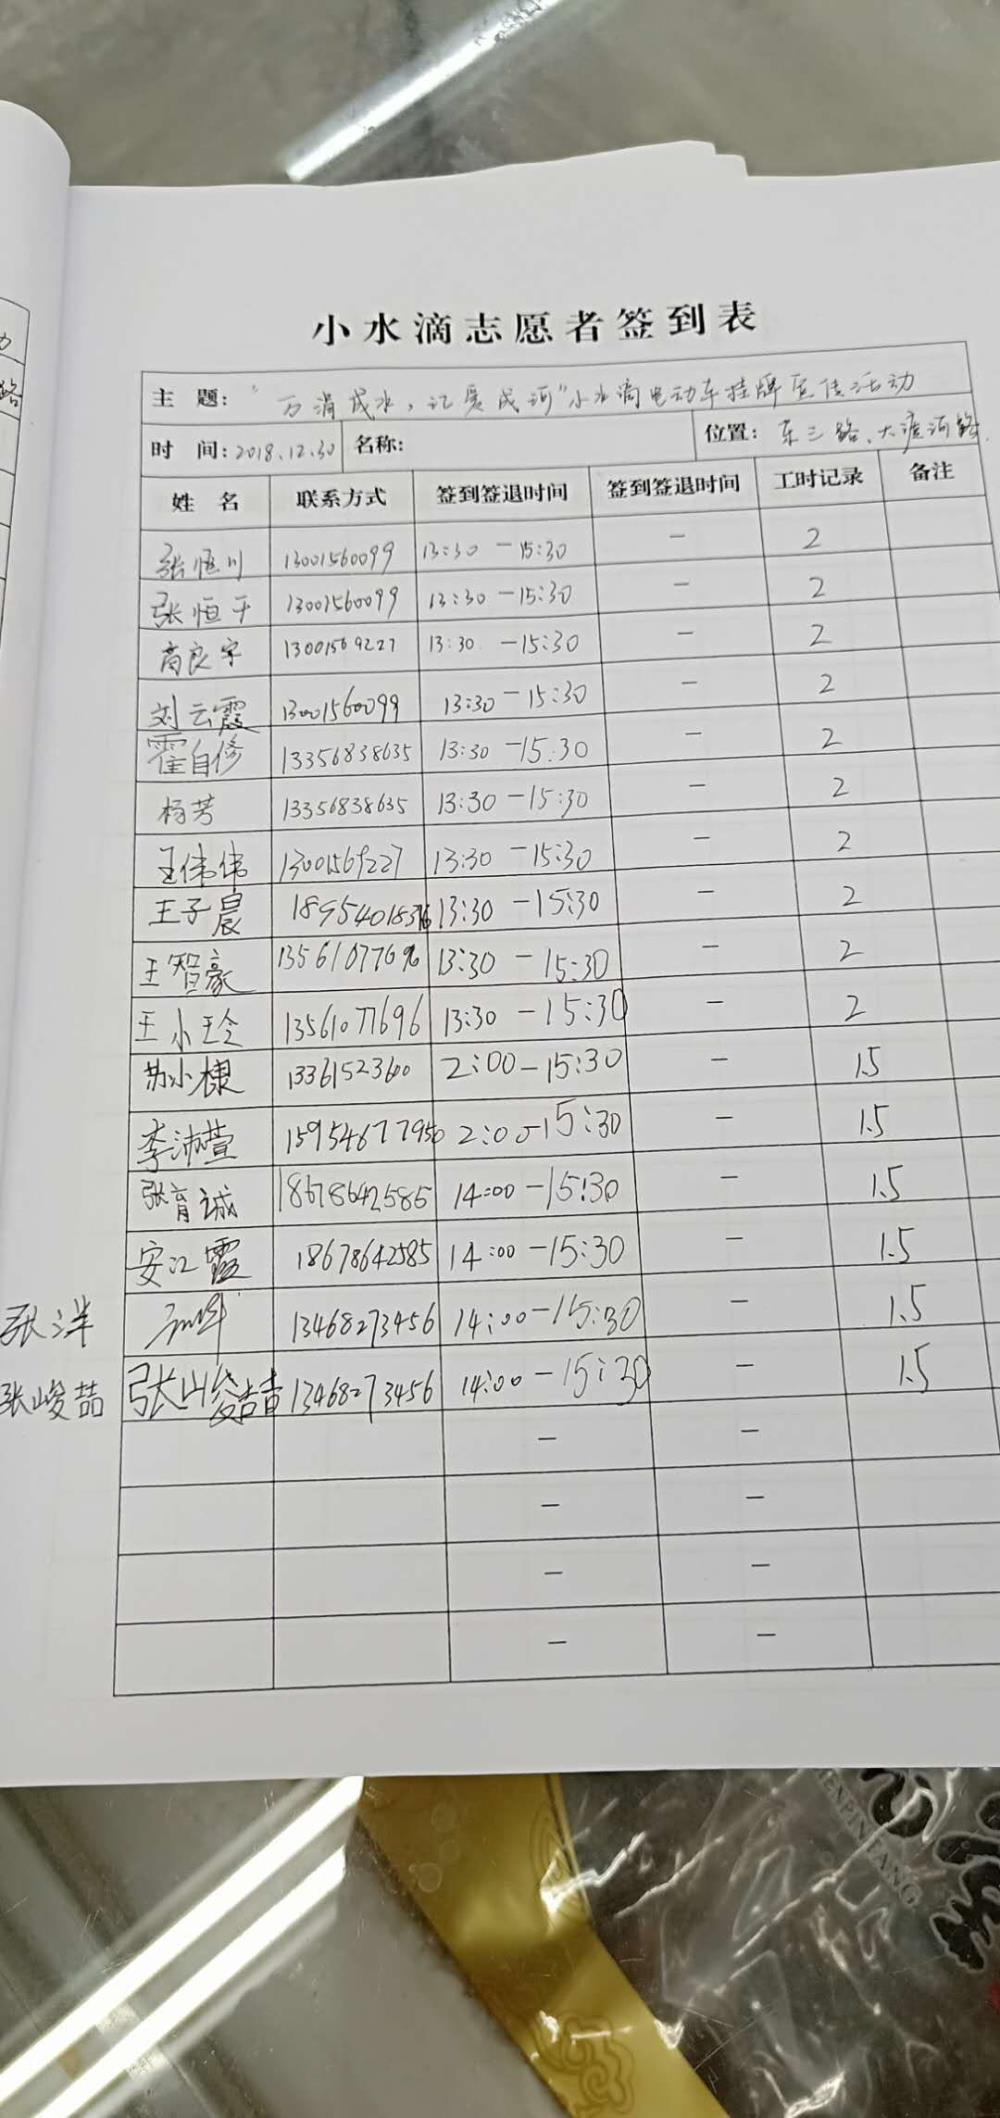 小水滴志愿者签到表
主 题: “万涓成水，汇聚成河”小水滴电动车挂牌宣传活动
时 间: 2018.12.30 名称: 位置: 东三路、大渡河路
姓 名 联系方式 签到签退时间 签到签退时间 工时记录 备注
张恒川 13001560099 13:30 － 15:30 － 2
张恒于 13001560099 13:30 － 15:30 － 2
高良宇 13001569227 13:30 － 15:30 － 2
刘云霞 13001560099 13:30 － 15:30 － 2
霍自修 13356838635 13:30 － 15:30 － 2
杨芳 13356838635 13:30 － 15:30 － 2
王伟伟 13001569227 13:30 － 15:30 － 2
王子晨 18954018376 13:30 － 15:30 － 2
王智豪 13561077696 13:30 － 15:30 － 2
王小玲 13561077696 13:30 － 15:30 － 2
苏小棣 1336152360 2:00 － 15:30 － 1.5
李沛萱 15954677950 2:00 － 15:30 － 1.5
张育诚 18678642585 14:00 － 15:30 － 1.5
安江霞 18678642585 14:00 － 15:30 － 1.5
张洋 13468273456 14:00 － 15:30 － 1.5
张峻喆 张峻喆 13468273456 14:00 － 15:30 － 1.5
－ －
－ －
－ －
－ －